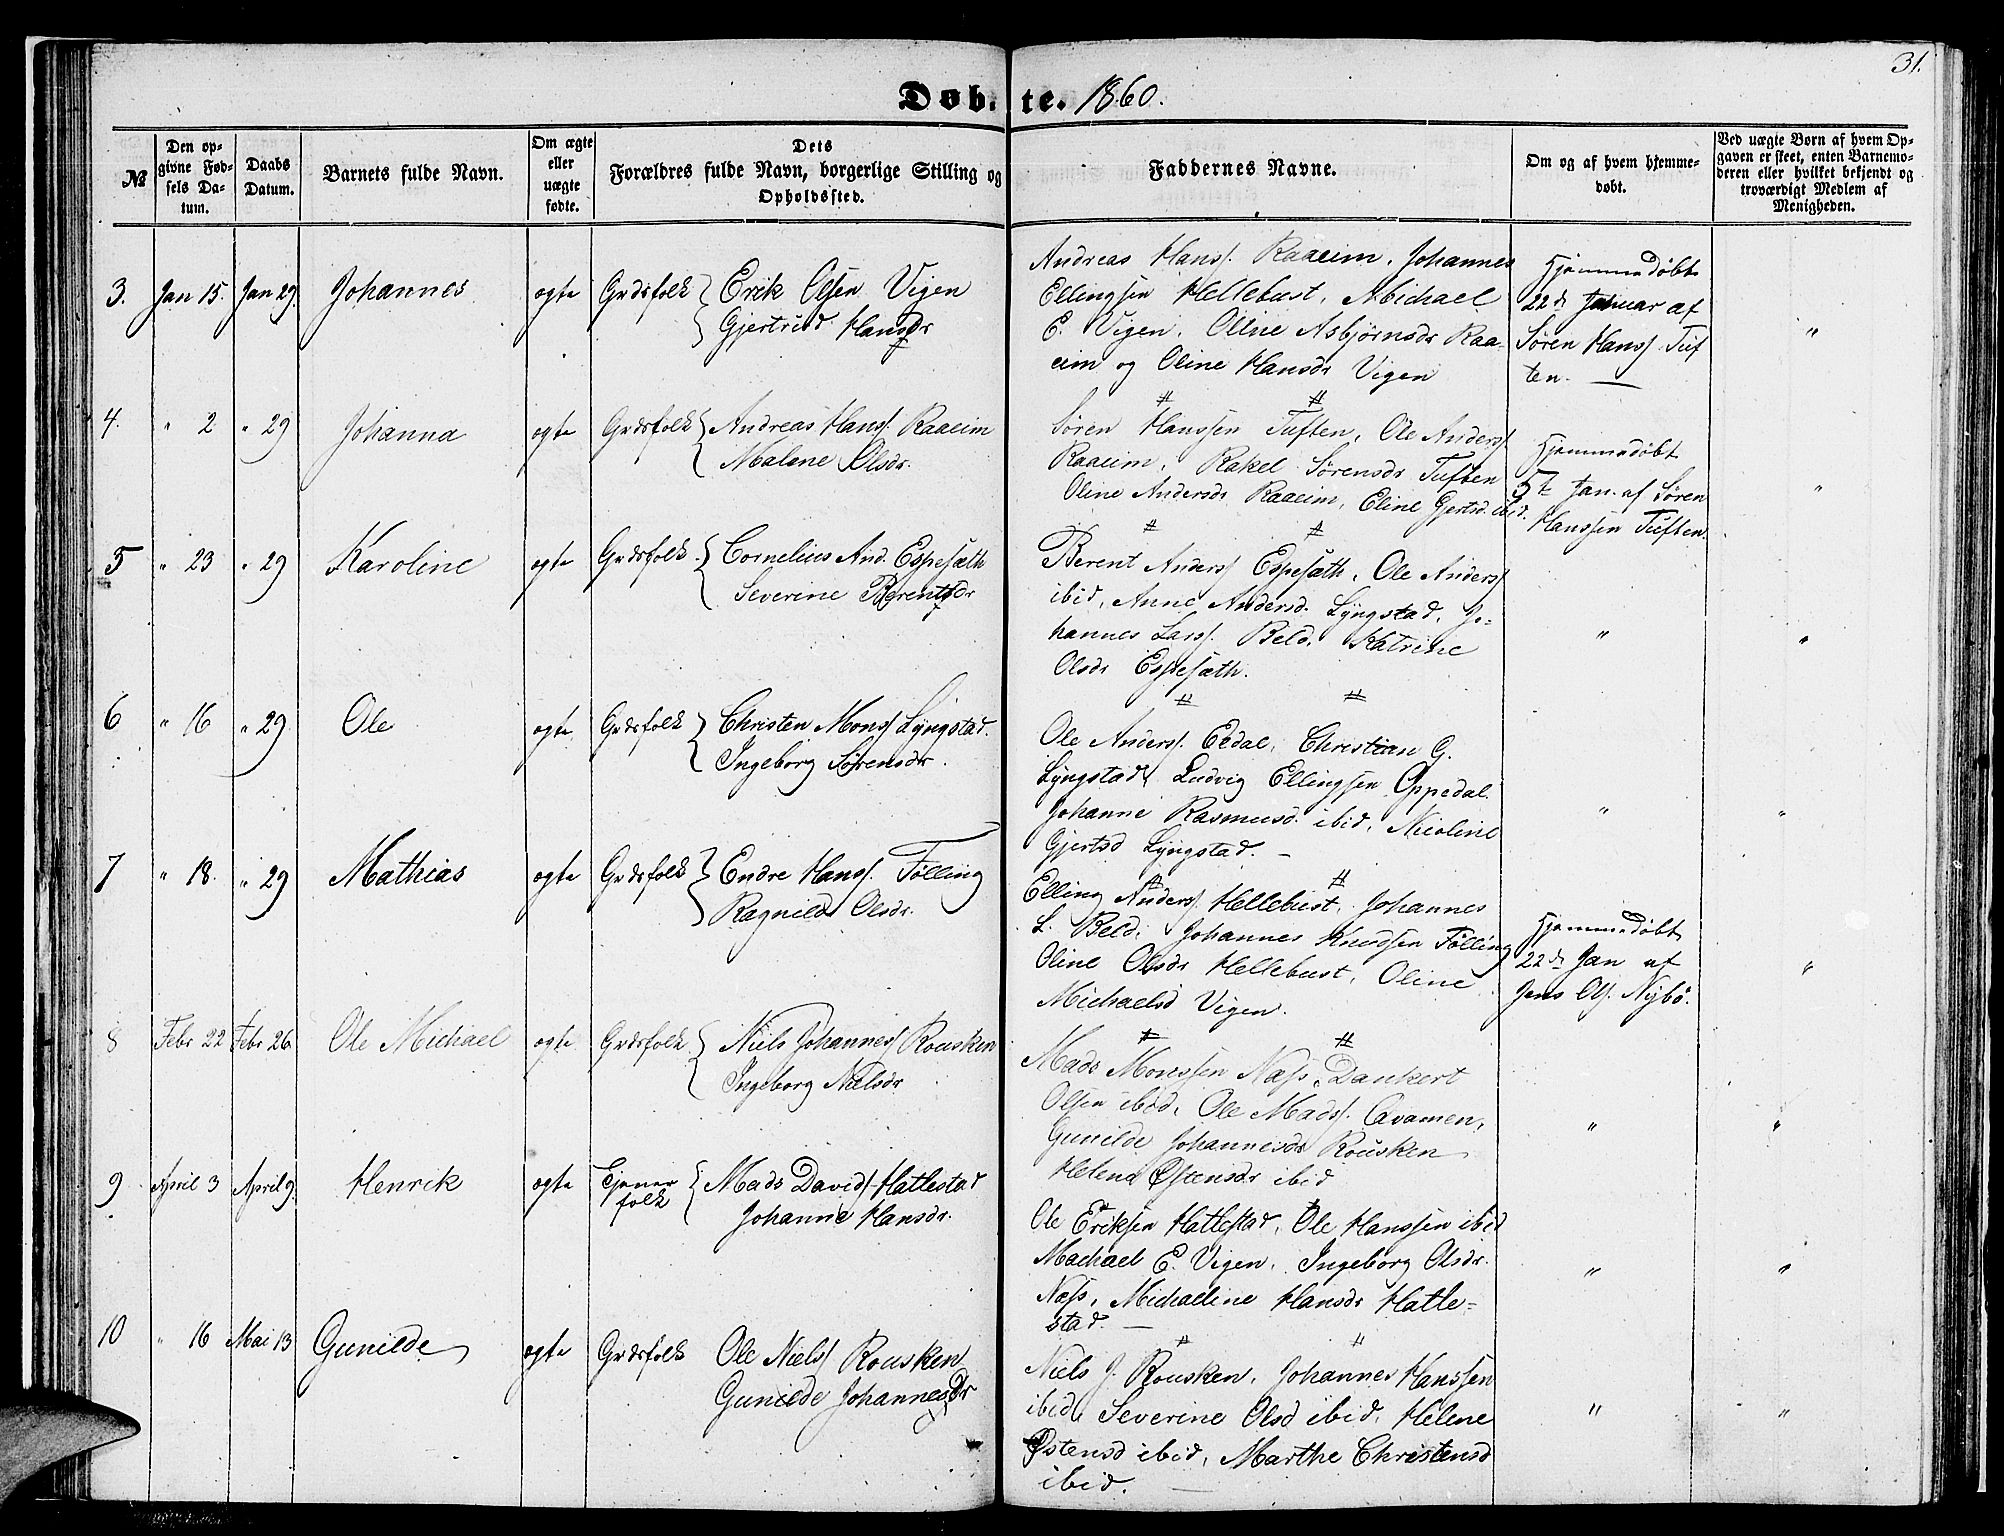 31.
Døbte. 1860.
№
Den opgivne Fødsels Datum.
Daabs Datum.
Barnets fulde Navn.
Om ægte eller uægte fødte.
Dets Forældres fulde Navn, borgerlige Stilling og Opholdssted.
Faddernes Navne.
Om og af hvem hjemmedøbt.
Ved uægte Børn af hvem Opgaven er skeet, enten Barnemoderen eller hvilket bekjendt og troværdigt Medlem af Menigheden.
3. Jan 15. Jan 29 Johannes ogte Grdsfolk { Erik Olsen Vigen
Gjertrud Hansdr
Andreas Hanss. Raaeim, Johannes
Ellingsen Hellebust, Michael
E. Vigen, Oline Asbjørnsdr Raa-
eim og Oline Hansdr Vigen
Hjemmedøbt
22d Januar af
Søren Hanss. Tuf
ten. —
"
4. " 2 " 29 Johanna ogte Grdsfolk { Andreas Hanss. Raaeim
Malene Olsdr.
Søren Hanssen Tuften, Ole Anderss
Raaeim, Rakel Sørensdr Tuften
Oline Andersdr Raaeim, Eline Gjertsd. ibid.
Hjemmedøbt
5te Jan. af Søren
Hanssen Tuften.
"
5 " 23 " 29 Karoline ogte Grdsfolk. { Cornelius And. Espesæth
Severine Berentsdr
Berent Anderss Espesæth, Ole Anderss
ibid, Anne Andersd. Lyngstad, Jo-
hannes Larss. Beld, Katrine
Olsdr Espesæth.
"
"
6 " 16 " 29 Ole ogte Grdsfolk { Christen Monss Lyngstad.
Ingeborg Sørensdr.
Ole Anderss. Erdal, Christian G.
Lyngstad, Ludvig Ellingsen Oppedal
Johanne Rasmusd. ibid, Nicoline
Gjertsd Lyngstad. —
"
"
7 " 18. " 29 Mathias ogte Grdsfolk } Endre Hanss. Følling
Ragnild Olsdr.
Elling Anderss. Hellebust, Johannes
L. Beld, Johannes Knudsen Følling
Oline Olsdr Hellebust, Oline
Michaelsd Vigen.
Hjemmedøbt
22d Jan af
Jens Ols. Nybö.
"
8 Febr 22 Febr 26 Ole Michael ogte Grdsfolk { Niels Johanness Rousken
Ingeborg Nielsdr
Mads Monssen Næss, Dankert
Olsen ibid, Ole Madss. Qvamen,
Gunilde Johannesdr Rousken
Helena Østensdr ibid
"
"
9 April 3 April 9. Henrik ogte Tjener
folk { Mads Davids Hatlestad
Johanne Hansdr.
Ole Eriksen Hatlestad, Ole Hanssen ibid
Machael E. Vigen, Ingeborg Olsdr.
Næss, Michaeline Hansdr Hatle-
stad. —
"
"
10 " 16 Mai 13 Gunilde ogte Grdsfolk Ole Nielss Rousken
Gunilde Johannesdr
Niels J. Rousken, Johannes Hanssen
ibid, Severine Olsd ibid, Helene
Østensd ibid, Marthe Christensd
ibid. —
"
"